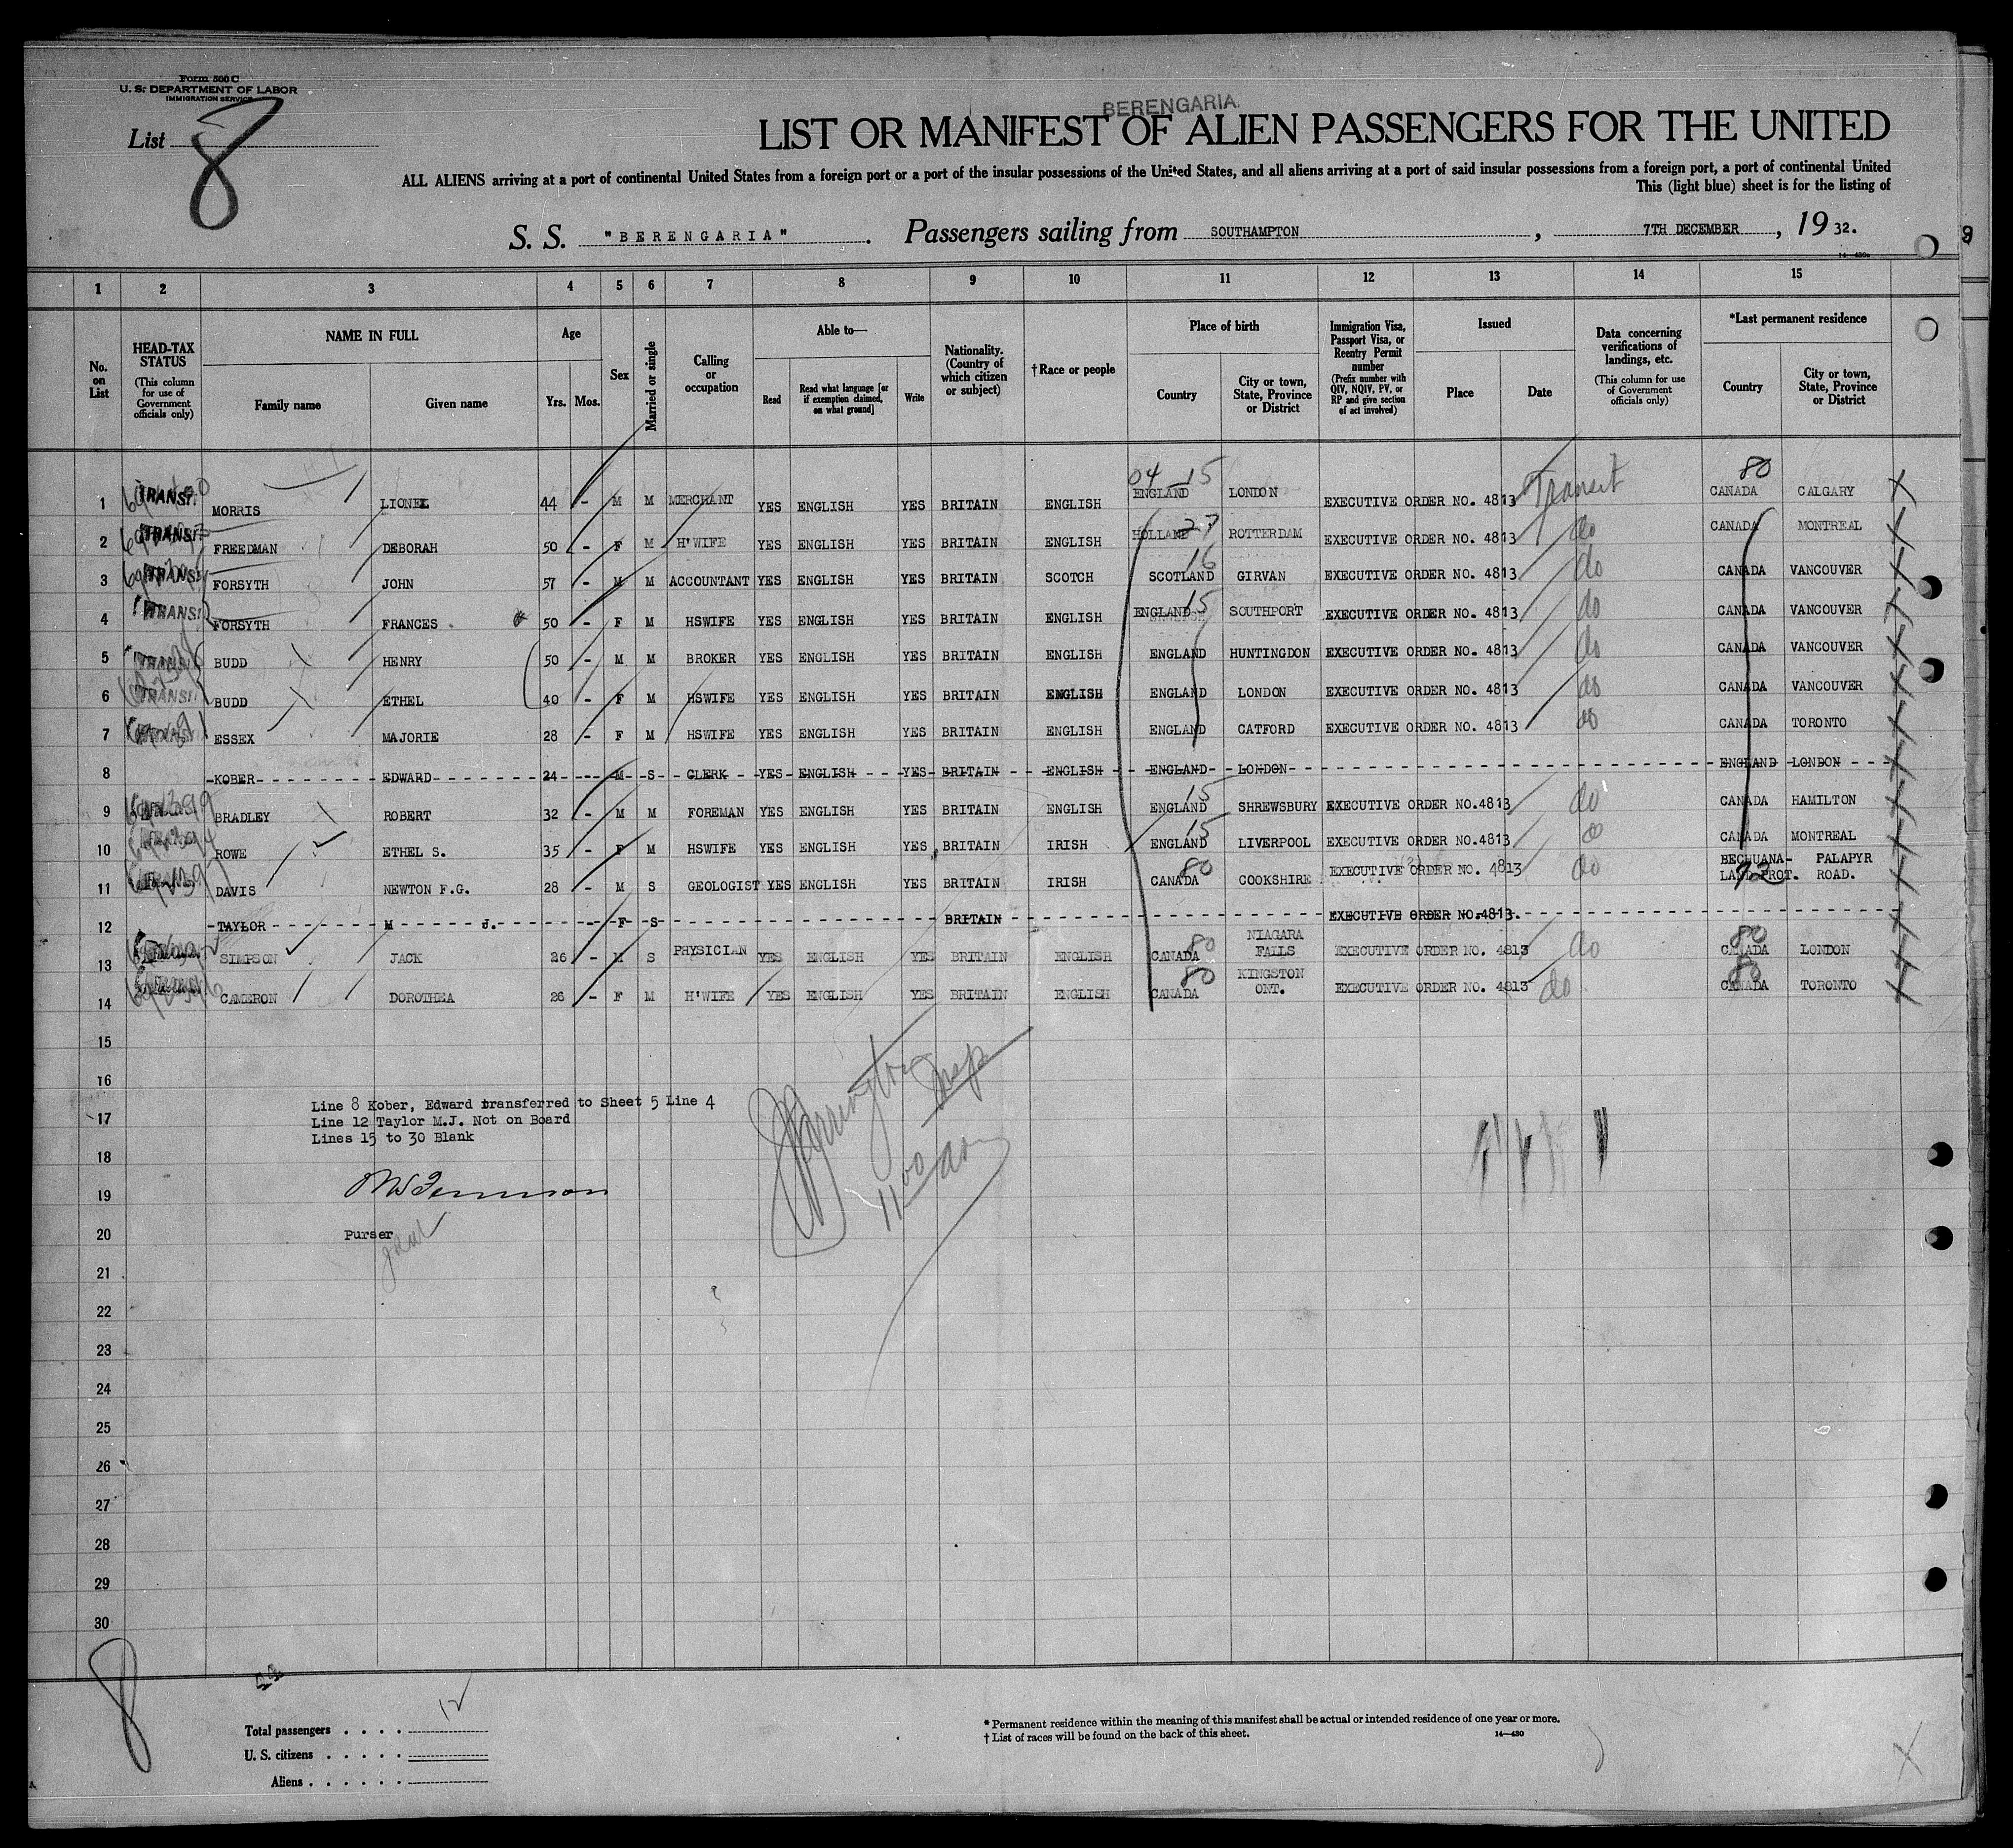 Form 500 C
U. S. DEPARTMENT OF LABOR
IMMIGRATION SERVICE
List 8
BERENGARIA
LIST OR MANIFEST OF ALIEN PASSENGERS FOR THE UNITED
ALL ALIENS arriving at a port of continental United States from a foreign port or a port of the insular possessions of the United States, and all aliens arriving at a port of said insular possessions from a foreign port, a port of continental United
This (light blue) sheet is for the listing of
S. S. "BERENGARIA". Passengers sailing from SOUTHAMPTON, 7TH DECEMBER, 1932.
1 2 3 4 5 6 7 8 9 10 11 12 13 14 15
No. on List
HEAD-TAX STATUS (This column for use of Government officials only)
NAME IN FULL
Family name
Given name
Age
Yrs. Mos.
Sex
Married or single
Calling or occupation
Able to—
Read
Read what language [or if exemption claimed, on what ground]
Write
Nationality. (Country of which citizen or subject)
†Race or people
Place of birth
Country
City or town, State, Province or District
Immigration Visa, Passport Visa, or Reentry Permit number (Prefix number with QIV, NQIV, PV, or RP and give section of act involved)
Issued
Place
Date
Data concerning verifications of landings, etc. (This column for use of Government officials only)
*Last permanent residence
Country
City or town, State, Province or District
04 15 80
1 TRANSIT MORRIS LIONEL 44 - M M MERCHANT YES ENGLISH YES BRITAIN ENGLISH ENGLAND LONDON EXECUTIVE ORDER NO. 4813 Transit CANADA CALGARY
2 TRANSIT FREEDMAN DEBORAH 50 - F M H'WIFE YES ENGLISH YES BRITAIN ENGLISH HOLLAND 27 ROTTERDAM EXECUTIVE ORDER NO. 4813 do CANADA MONTREAL
3 TRANSIT FORSYTH JOHN 57 - M M ACCOUNTANT YES ENGLISH YES BRITAIN SCOTCH SCOTLAND 16 GIRVAN EXECUTIVE ORDER NO. 4813 do CANADA VANCOUVER
4 TRANSIT FORSYTH FRANCES. 50 - F M HSWIFE YES ENGLISH YES BRITAIN ENGLISH ENGLAND 15 SOUTHPORT EXECUTIVE ORDER NO. 4813 do CANADA VANCOUVER
5 TRANSIT BUDD HENRY 50 - M M BROKER YES ENGLISH YES BRITAIN ENGLISH ENGLAND HUNTINGDON EXECUTIVE ORDER NO. 4813 do CANADA VANCOUVER
6 TRANSIT BUDD ETHEL 40 - F M HSWIFE YES ENGLISH YES BRITAIN ENGLISH ENGLAND LONDON EXECUTIVE ORDER NO. 4813 do CANADA VANCOUVER
7 ESSEX MAJORIE 28 - F M HSWIFE YES ENGLISH YES BRITAIN ENGLISH ENGLAND CATFORD EXECUTIVE ORDER NO. 4813 do CANADA TORONTO
8 KOBER EDWARD 24 - M S CLERK YES ENGLISH YES BRITAIN ENGLISH ENGLAND LONDON ENGLAND LONDON
9 BRADLEY ROBERT 32 - M M FOREMAN YES ENGLISH YES BRITAIN ENGLISH ENGLAND 15 SHREWSBURY EXECUTIVE ORDER NO.4813 do CANADA HAMILTON
10 ROWE ETHEL S. 35 - F M HSWIFE YES ENGLISH YES BRITAIN IRISH ENGLAND 15 LIVERPOOL EXECUTIVE ORDER NO.4813 do CANADA MONTREAL
11 DAVIS NEWTON F.G. 28 - M S GEOLOGIST YES ENGLISH YES BRITAIN IRISH CANADA 80 COOKSHIRE EXECUTIVE ORDER NO. 4813 do BECHUANA- LAND PROT. PALAPYR ROAD.
12 TAYLOR M J. - F S BRITAIN EXECUTIVE ORDER NO.4813.
13 SIMPSON JACK 26 - M S PHYSICIAN YES ENGLISH YES BRITAIN ENGLISH CANADA 80 NIAGARA FALLS EXECUTIVE ORDER NO. 4813 do CANADA 80 LONDON
14 CAMERON DOROTHEA 26 - F M H'WIFE YES ENGLISH YES BRITAIN ENGLISH CANADA 80 KINGSTON ONT. EXECUTIVE ORDER NO. 4813 do CANADA 80 TORONTO
15
16
17
18
19
20
21
22
23
24
25
26
27
28
29
30
Line 8 Kober, Edward transferred to Sheet 5 Line 4
Line 12 Taylor M.J. Not on Board
Lines 15 to 30 Blank
Purser
Insp
11 00 am
8
Total passengers . . . . 12
U. S. citizens . . . . .
Aliens . . . . . .
* Permanent residence within the meaning of this manifest shall be actual or intended residence of one year or more.
† List of races will be found on the back of this sheet.
14—430